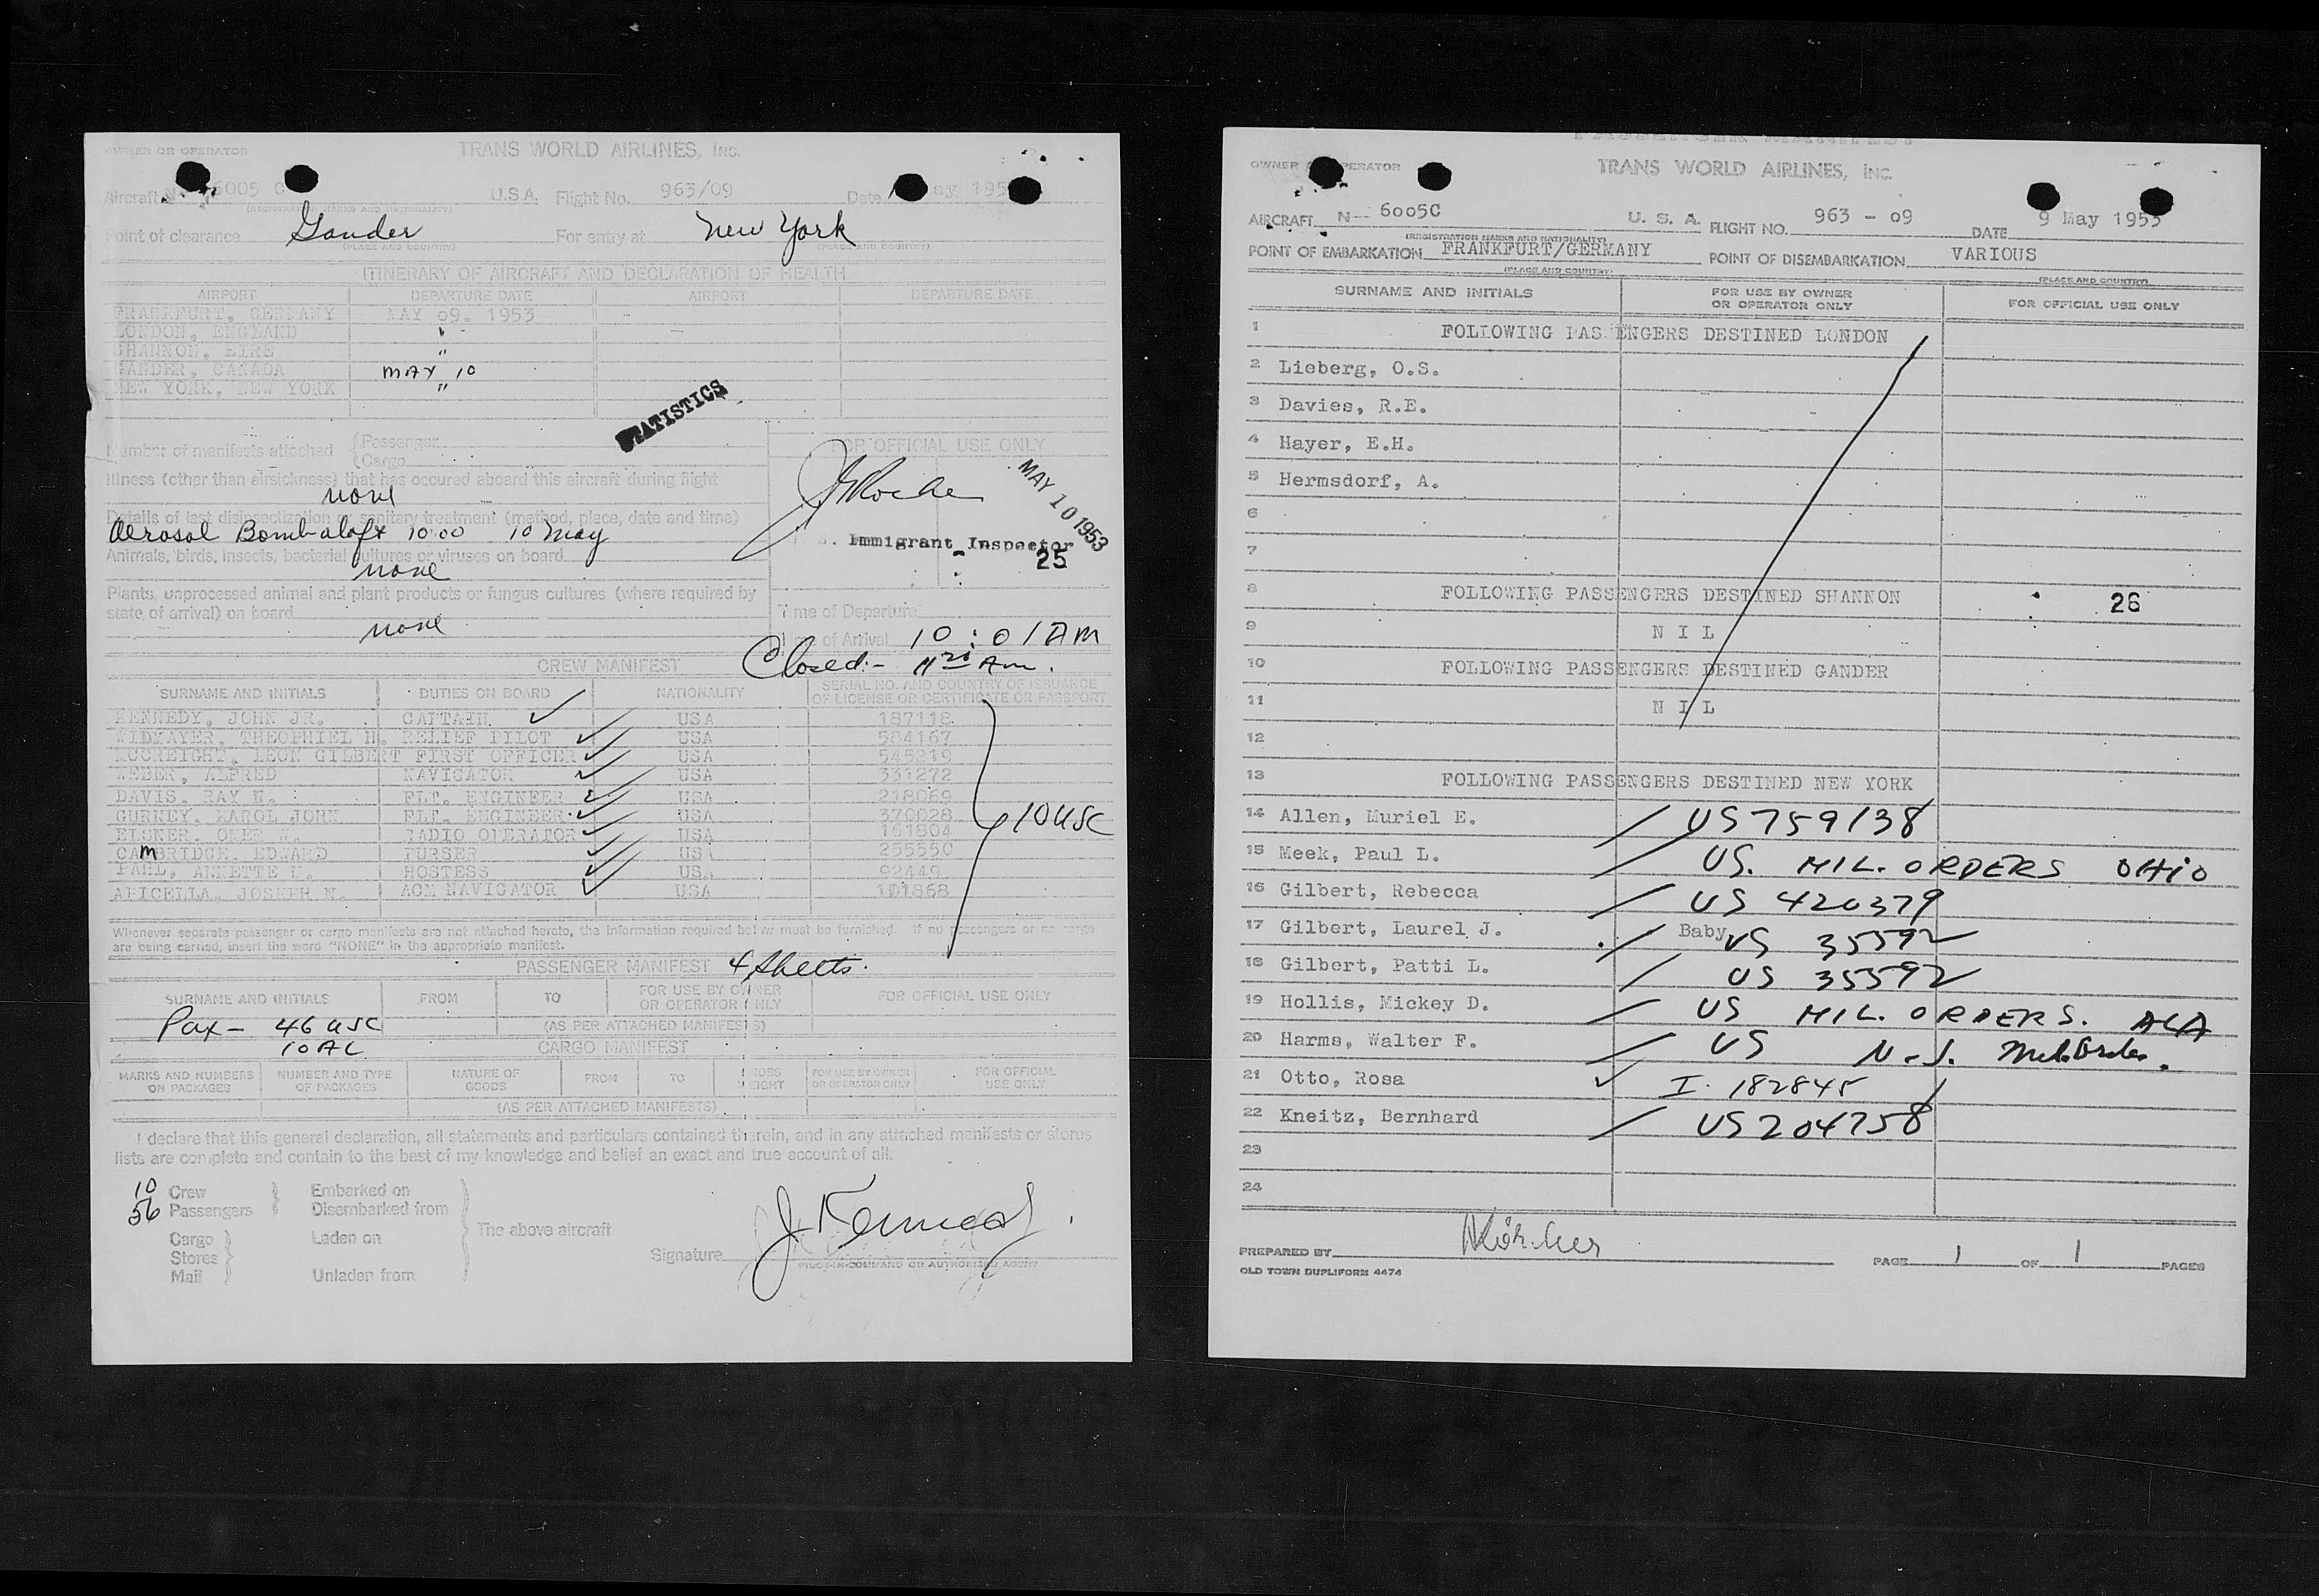 OWNER OR OPERATOR TRANS WORLD AIRLINES, INC.
Aircraft N 6005 C U.S.A. Flight No. 963/09 Date May 195
(REGISTRATION MARKS AND NATIONALITY)
Point of clearance Gander For entry at New York
(PLACE AND COUNTRY) (PLACE AND COUNTRY)
ITINERARY OF AIRCRAFT AND DECLARATION OF HEALTH
AIRPORT DEPARTURE DATE AIRPORT DEPARTURE DATE
FRANKFURT, GERMANY MAY 09. 1953
LONDON, ENGLAND "
SHANNON, EIRE "
GANDER, CANADA MAY 10
NEW YORK, NEW YORK "
STATISTICS
Number of manifests attached { Passenger
{ Cargo
FOR OFFICIAL USE ONLY
Illness (other than airsickness) that has occured aboard this aircraft during flight
none
MAY 10 1953
Details of last disinsectization or sanitary treatment (method, place, date and time)
Aerosol Bomb aloft 10:00 10 May
Immigrant Inspector
25
Animals, birds, insects, bacterial cultures or viruses on board
none
Plants, unprocessed animal and plant products or fungus cultures (where required by
state of arrival) on board
none
Time of Departure
Time of Arrival 10:01 AM
Closed:- 11 20 Am.
CREW MANIFEST
SURNAME AND INITIALS DUTIES ON BOARD NATIONALITY SERIAL NO. AND COUNTRY OF ISSUANCE
OF LICENSE OR CERTIFICATE OR PASSPORT
KENNEDY, JOHN JR. CAPTAIN USA 187118
WIDMAYER, THEOPHIEL H. RELIEF PILOT USA 584167
MCCREIGHT, LEON GILBERT FIRST OFFICER USA 545219
WEBER, ALFRED NAVIGATOR USA 331272
DAVIS, RAY N. FLT. ENGINEER USA 218069
GURNEY, KAROL JOHN FLT. ENGINEER USA 370028
ELSNER, OMER W. RADIO OPERATOR USA 161804
CAMBRIDGE, EDWARD PURSER USA 255550
PAHL, ANNETTE M. HOSTESS USA 92449
APICELLA, JOSEPH N. ACM NAVIGATOR USA 101868
10 USC
Whenever separate passenger or cargo manifests are not attached hereto, the information required below must be furnished. If no passengers or no cargo
are being carried, insert the word "NONE" in the appropriate manifest.
PASSENGER MANIFEST 4 Sheets.
SURNAME AND INITIALS FROM TO FOR USE BY OWNER
OR OPERATOR ONLY FOR OFFICIAL USE ONLY
Pax - 46 USC (AS PER ATTACHED MANIFESTS)
10 AL CARGO MANIFEST
MARKS AND NUMBERS
ON PACKAGES NUMBER AND TYPE
OF PACKAGES NATURE OF
GOODS FROM TO GROSS
WEIGHT FOR USE BY OWNER
OR OPERATOR ONLY FOR OFFICIAL
USE ONLY
(AS PER ATTACHED MANIFESTS)
I declare that this general declaration, all statements and particulars contained therein, and in any attached manifests or stores
lists are complete and contain to the best of my knowledge and belief an exact and true account of all:
10 Crew } Embarked on
56 Passengers } Disembarked from
Cargo } Laden on
Stores }
Mail } Unladen from
The above aircraft
Signature J. Kennedy
PILOT-IN-COMMAND OR AUTHORIZED AGENT
PASSENGER MANIFEST
OWNER OR OPERATOR TRANS WORLD AIRLINES, INC
AIRCRAFT N-- 6005C U. S. A. FLIGHT NO. 963 - 09 DATE 9 May 1953
(REGISTRATION MARKS AND NATIONALITY)
POINT OF EMBARKATION FRANKFURT/GERMANY POINT OF DISEMBARKATION VARIOUS
(PLACE AND COUNTRY) (PLACE AND COUNTRY)
SURNAME AND INITIALS FOR USE BY OWNER
OR OPERATOR ONLY FOR OFFICIAL USE ONLY
1 FOLLOWING PASSENGERS DESTINED LONDON
2 Lieberg, O.S.
3 Davies, R.E.
4 Hayer, E.H.
5 Hermsdorf, A.
6
7
8 FOLLOWING PASSENGERS DESTINED SHANNON 26
9 N I L
10 FOLLOWING PASSENGERS DESTINED GANDER
11 N I L
12
13 FOLLOWING PASSENGERS DESTINED NEW YORK
14 Allen, Muriel E. US 759138
15 Meek, Paul L. US. MIL. ORDERS OHIO
16 Gilbert, Rebecca US 420379
17 Gilbert, Laurel J. Baby US 35592
18 Gilbert, Patti L. US 35592
19 Hollis, Mickey D. US MIL. ORDERS. ALA
20 Harms, Walter F. US N.J. Mil. Orders.
21 Otto, Rosa I. 182845
22 Kneitz, Bernhard US 204758
23
24
PREPARED BY PAGE 1 OF 1 PAGES
OLD TOWN DUPLIFORM 4474